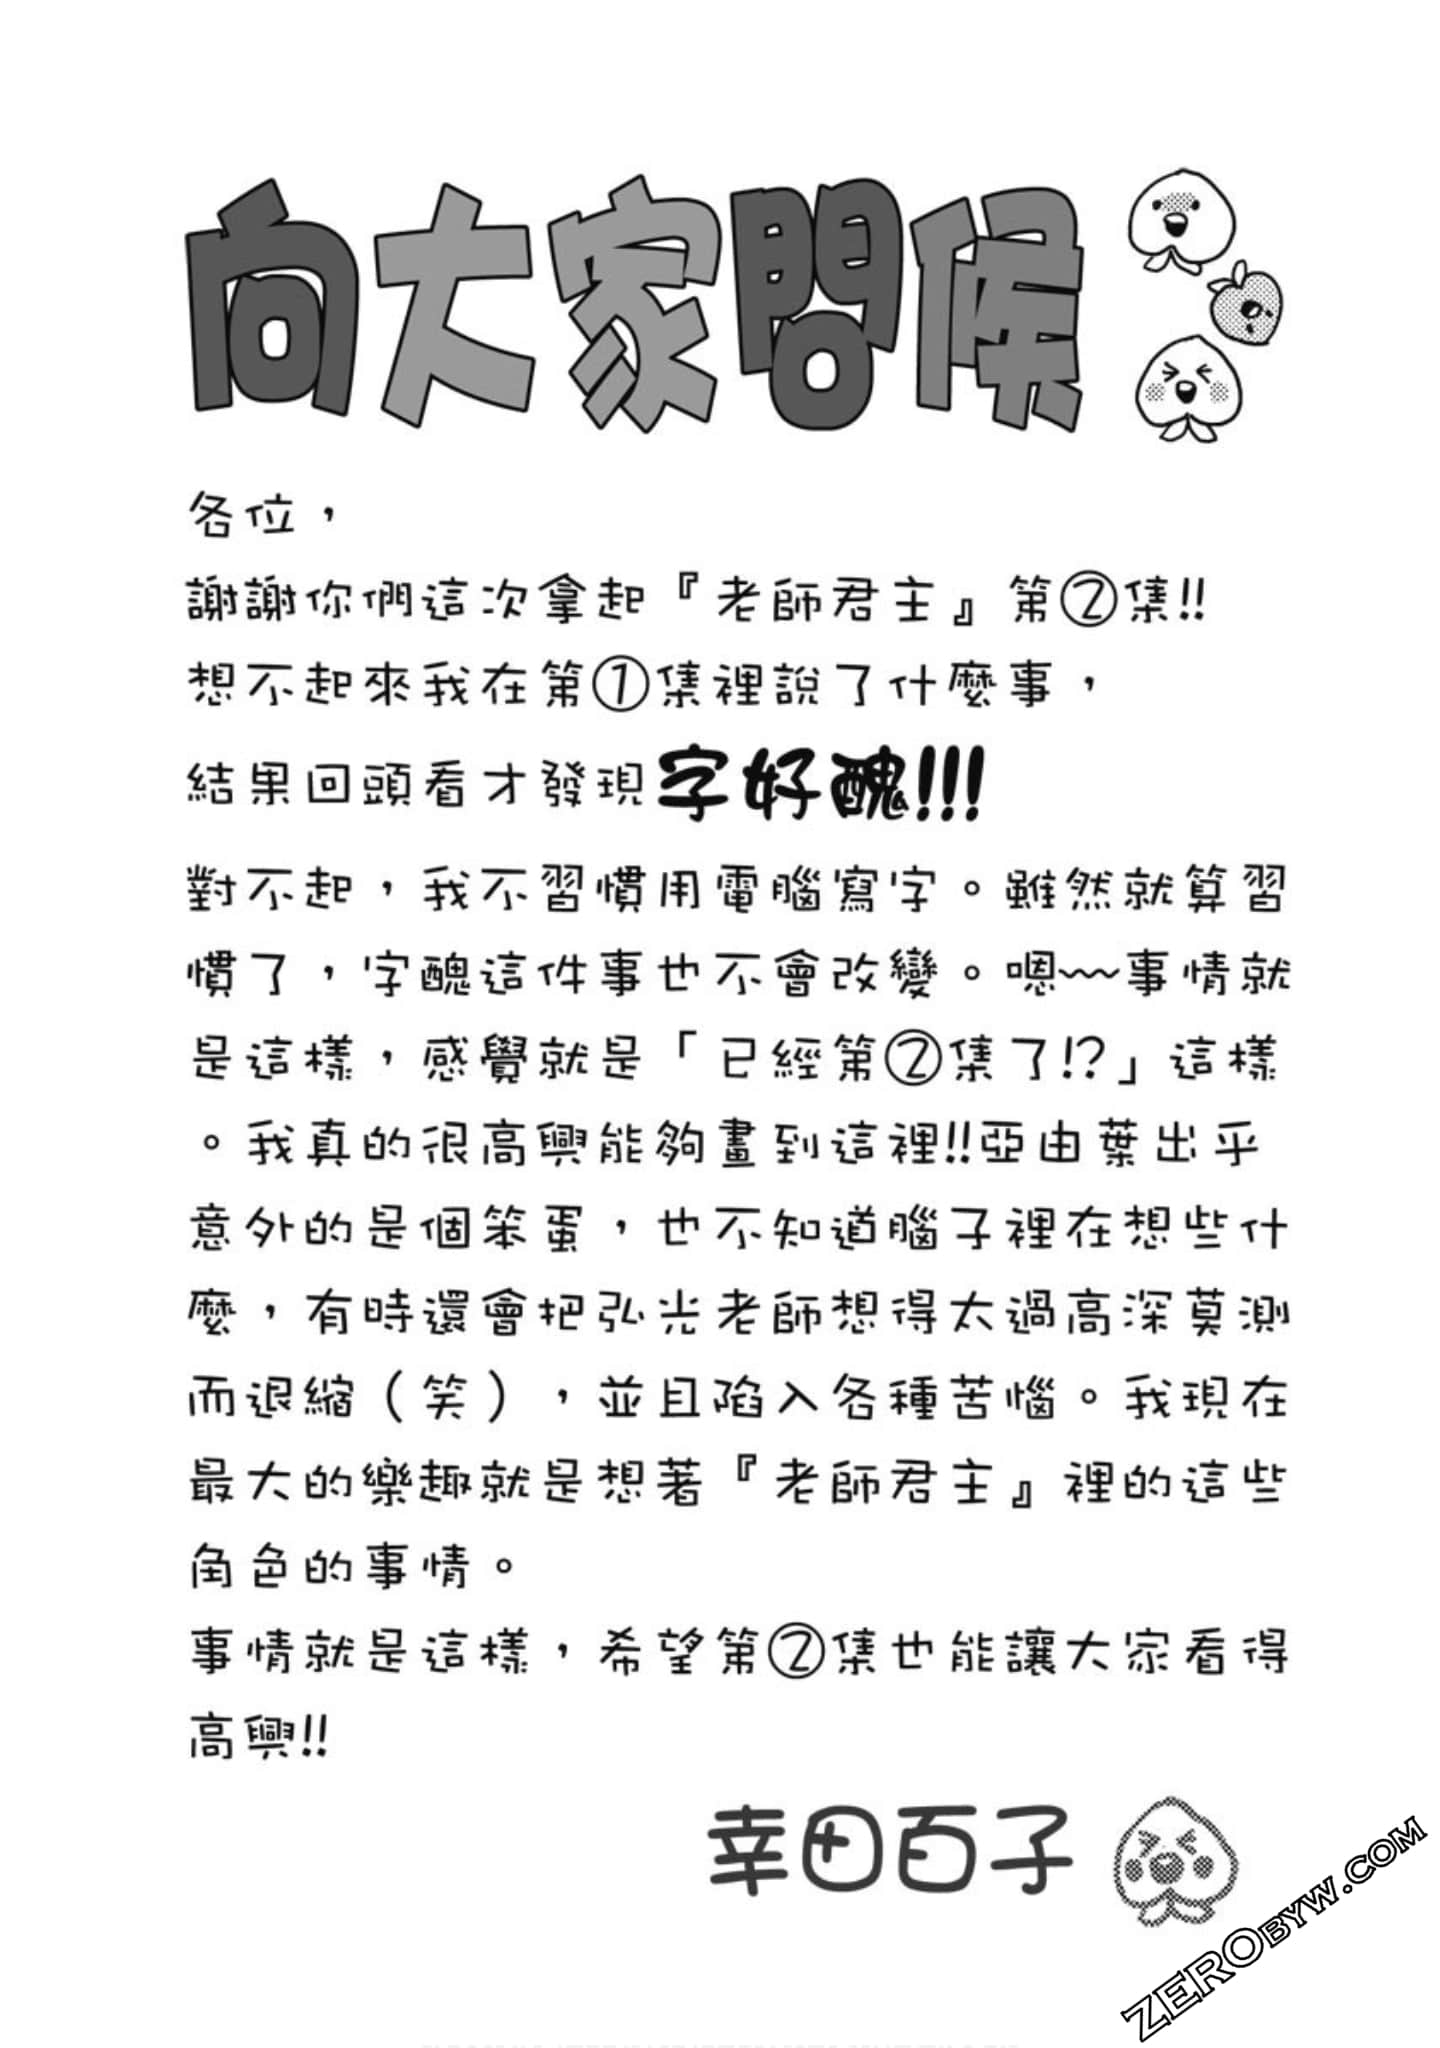 向大家問候
各位，
謝謝你們這次拿起『老師君主』第②集!!
想不起來我在第①集裡說了什麼事，
結果回頭看才發現字好醜!!!
對不起，我不習慣用電腦寫字。雖然就算習
慣了，字醜這件事也不會改變。嗯〰事情就
是這樣，感覺就是「已經第②集了!?」這樣
。我真的很高興能夠畫到這裡!!亞由葉出乎
意外的是個笨蛋，也不知道腦子裡在想些什
麼，有時還會把弘光老師想得太過高深莫測
而退縮（笑），並且陷入各種苦惱。我現在
最大的樂趣就是想著『老師君主』裡的這些
角色的事情。
事情就是這樣，希望第②集也能讓大家看得
高興!!
幸田百子
ZEROBYW.COM